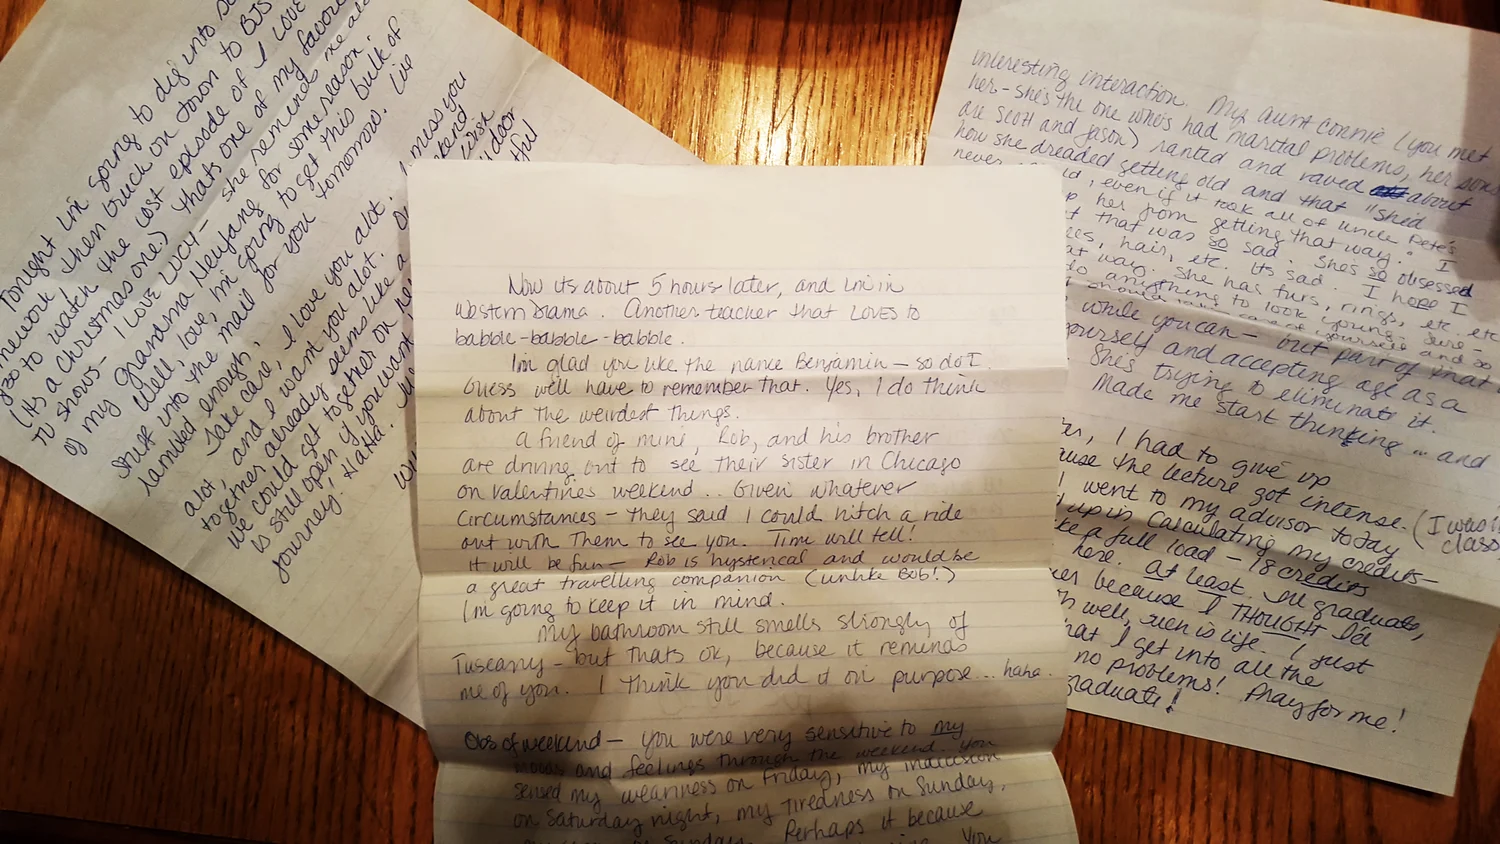 Tonight I'm going to dig into so
then truck on down to BJS
7:30 to watch the lost episode of I LOVE
(It's a Christmas one.) thats one of my favorite
TV shows - I LOVE LUCY - she reminds me
of my Grandma Neufang for some reason.
Well, love, I'm going to get this bulk of
stuff into the mail for you tomorrow.
enough.
Take care, I love you alot. I miss you
alot, and I want you alot.
together already seems like a
we could get together on
is still open, if you want
journey. HaHa.
wish
door
Now its about 5 hours later, and I'm in
Western Drama. Another teacher that LOVES to
babble-babble-babble.
I'm glad you like the name Benjamin - so do I.
Guess we'll have to remember that. Yes, I do think
about the weirdest things.
A friend of mine, Rob, and his brother
are driving out to see their sister in Chicago
on Valentines weekend.. Given whatever
circumstances - they said I could hitch a ride
out with them to see you. Time will tell!
It will be fun - Rob is hysterical and would be
a great travelling companion (unlike Bob!)
I'm going to keep it in mind.
My bathroom still smells strongly of
Tuscany - but thats ok, because it reminds
me of you. I think you did it on purpose... haha.
Obs of weekend - you were very sensitive to my
moods and feelings through the weekend. You
sensed my weariness on Friday, my
on Saturday night, my tiredness on Sunday,
Perhaps it because
Sunday. You
interesting interaction. My aunt Connie (you met
her - she's the one who's had marital problems, her sons
are Scott and Jason) ranted and raved about
how she dreaded getting old and that "she'd
never, even if it took all of uncle Pete's
her from getting that way." I
that was so sad. She's so obsessed
hair, etc. Its sad. I hope I
way. She has furs, rings, etc. etc
do anything to look young. Sure -
should take care of yourself and so
while you can - but part of that
yourself and accepting age as a
She's trying to eliminate it.
Made me start thinking... and
I had to give up
the lecture got intense. (I was in
class
I went to my advisor today
up in calculating my credits -
a full load - 18 credits
here. At least I'll graduate,
because I THOUGHT I'd
well, such is life. I just
that I get into all the
no problems! Pray for me!
graduate!